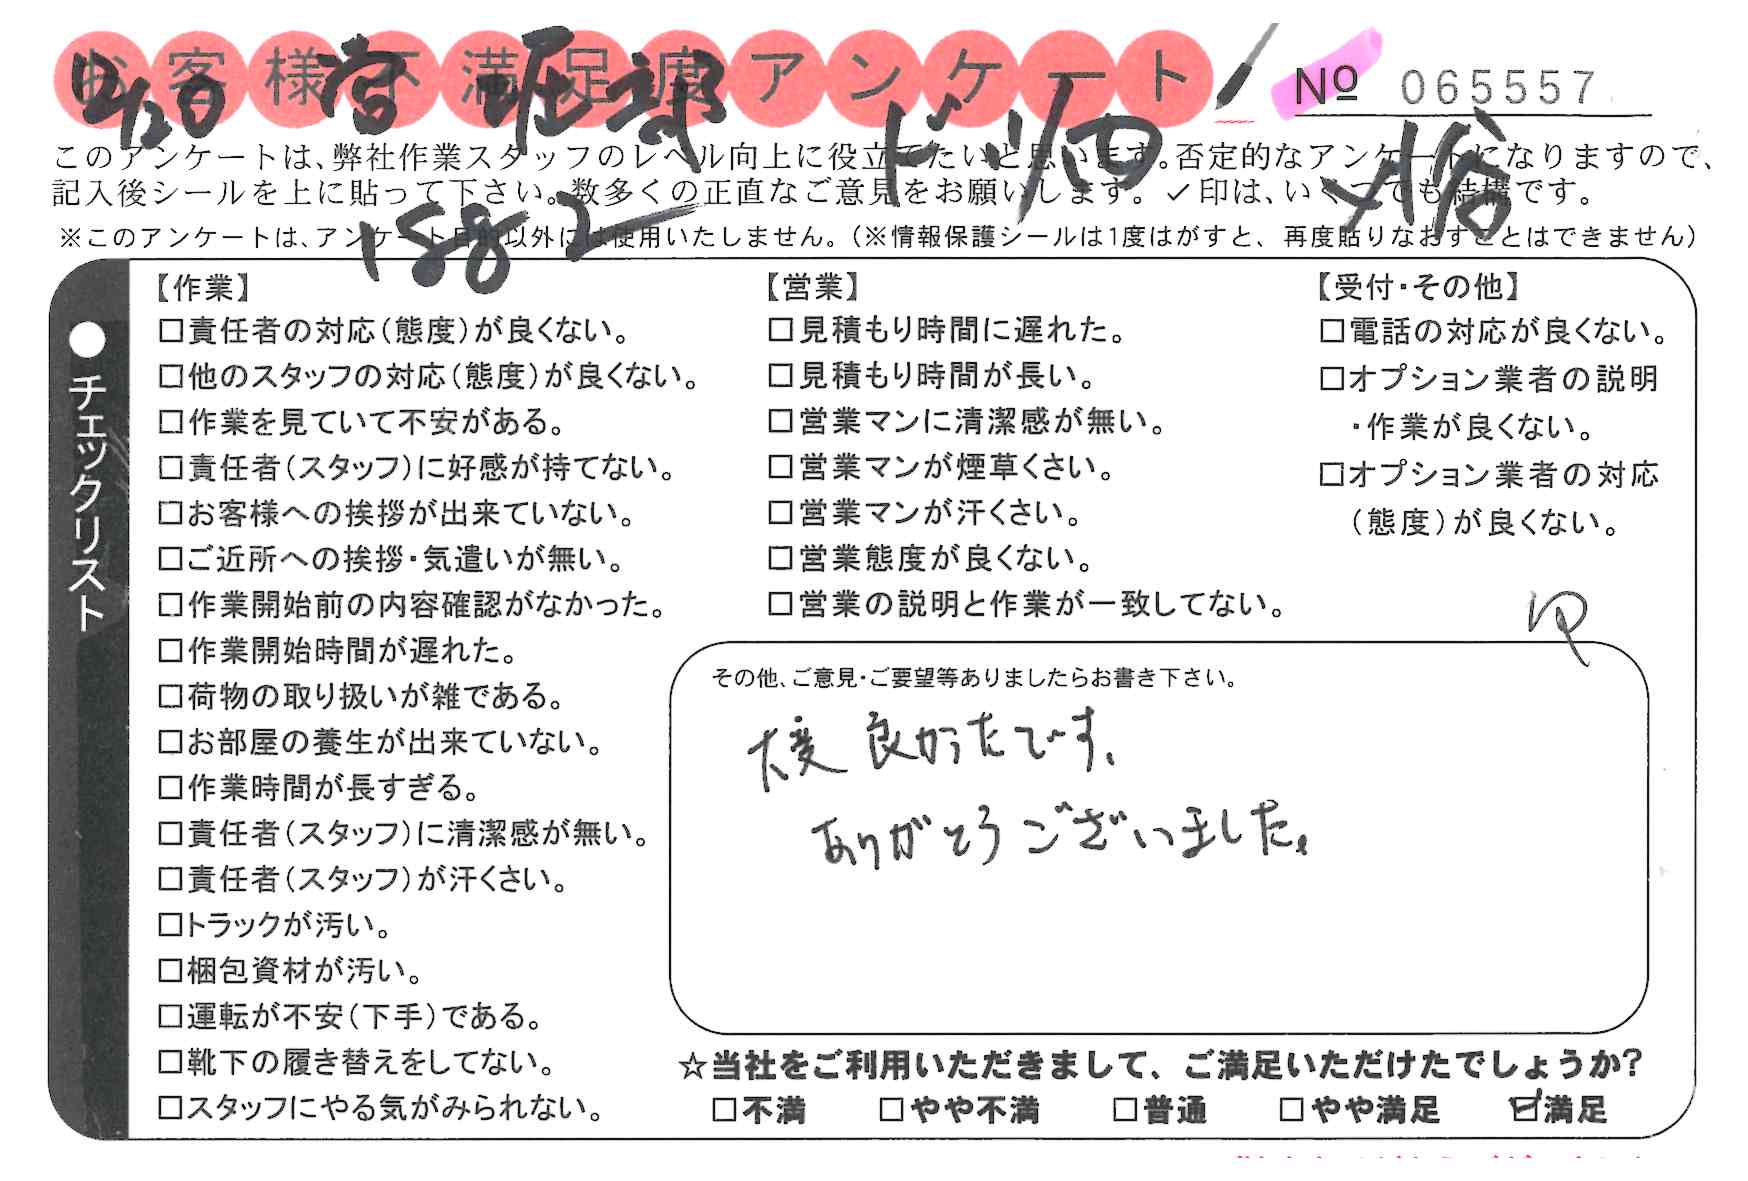 お客様不満足度アンケート
No 065557
このアンケートは、弊社作業スタッフのレベル向上に役立てたいと思います。否定的なアンケートになりますので、
記入後シールを上に貼って下さい。数多くの正直なご意見をお願いします。✓印は、いくつでも結構です。
※このアンケートは、アンケート目的以外には使用いたしません。（※情報保護シールは1度はがすと、再度貼りなおすことはできません）
1582
●チェックリスト
【作業】
□責任者の対応（態度）が良くない。
□他のスタッフの対応（態度）が良くない。
□作業を見ていて不安がある。
□責任者（スタッフ）に好感が持てない。
□お客様への挨拶が出来ていない。
□ご近所への挨拶・気遣いが無い。
□作業開始前の内容確認がなかった。
□作業開始時間が遅れた。
□荷物の取り扱いが雑である。
□お部屋の養生が出来ていない。
□作業時間が長すぎる。
□責任者（スタッフ）に清潔感が無い。
□責任者（スタッフ）が汗くさい。
□トラックが汚い。
□梱包資材が汚い。
□運転が不安（下手）である。
□靴下の履き替えをしてない。
□スタッフにやる気がみられない。
【営業】
□見積もり時間に遅れた。
□見積もり時間が長い。
□営業マンに清潔感が無い。
□営業マンが煙草くさい。
□営業マンが汗くさい。
□営業態度が良くない。
□営業の説明と作業が一致してない。
【受付・その他】
□電話の対応が良くない。
□オプション業者の説明
・作業が良くない。
□オプション業者の対応
（態度）が良くない。
その他、ご意見・ご要望等ありましたらお書き下さい。
大変良かったです。
ありがとうございました。
☆当社をご利用いただきまして、ご満足いただけたでしょうか?
□不満 □やや不満 □普通 □やや満足 ☑満足